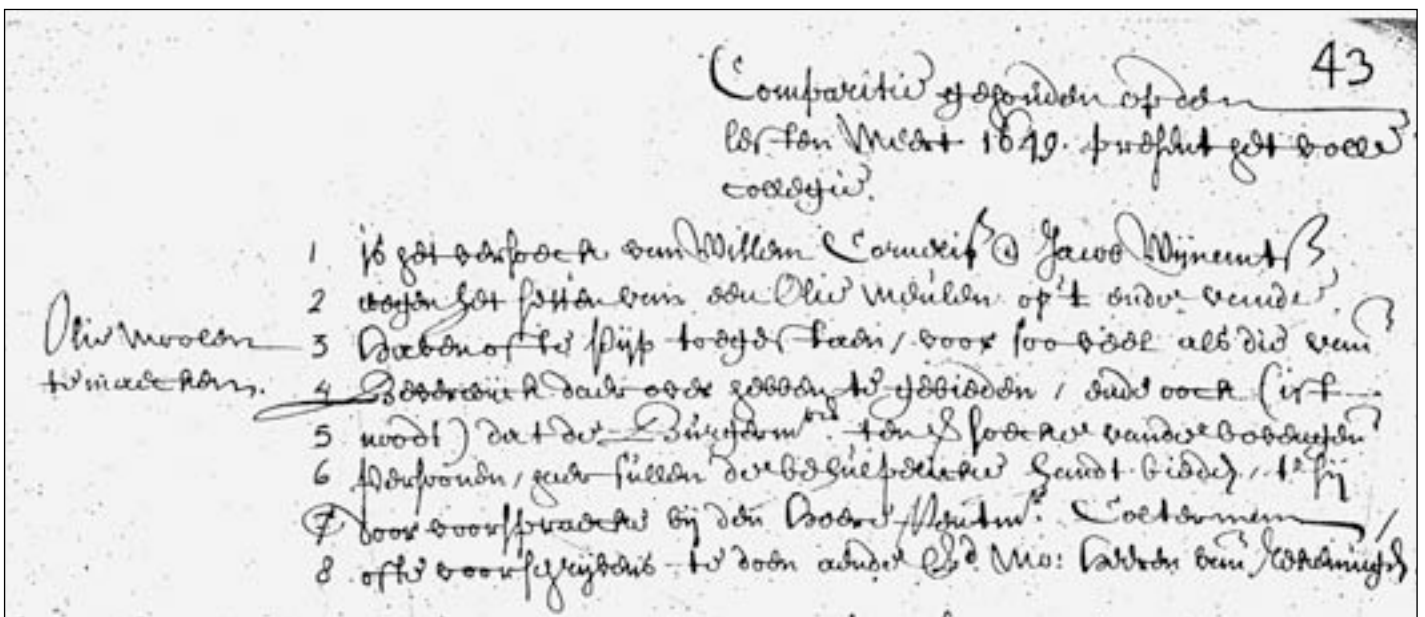 43
Comparitie gehouden op den
lesten Meert 1649. present het volle
collegie.
1 is het versoeck van Willem Cornelisz & Jacob Wijnantsz
2 wegen het setten van een Olie Meulen op't eijnde vande
Olie Moolen
te maecken.
3 Haven ofte Pijp toegestaen, voor soo veel als die van
4 Beverwijck daer over hebben te gebieden, ende oock (ist
5 noodt) dat de Burgermrs. ten versoecke vande bovengen
6 Persoonen, haer sullen de behulpelicke handt bieden, t'sij
7 Door voorspraecke bij den Heere Rentmr. Coeterman,
8 ofte voorschrijvens te doen aende Ed. Mo: Heeren van Rekeningh